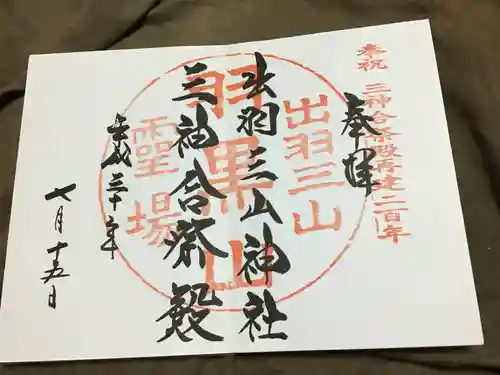 奉祝 三神合祭殿再建二百年
奉拝
出羽三山
出羽三山神社
羽黒山
三神合祭殿
霊場
平成三十年
七月十五日